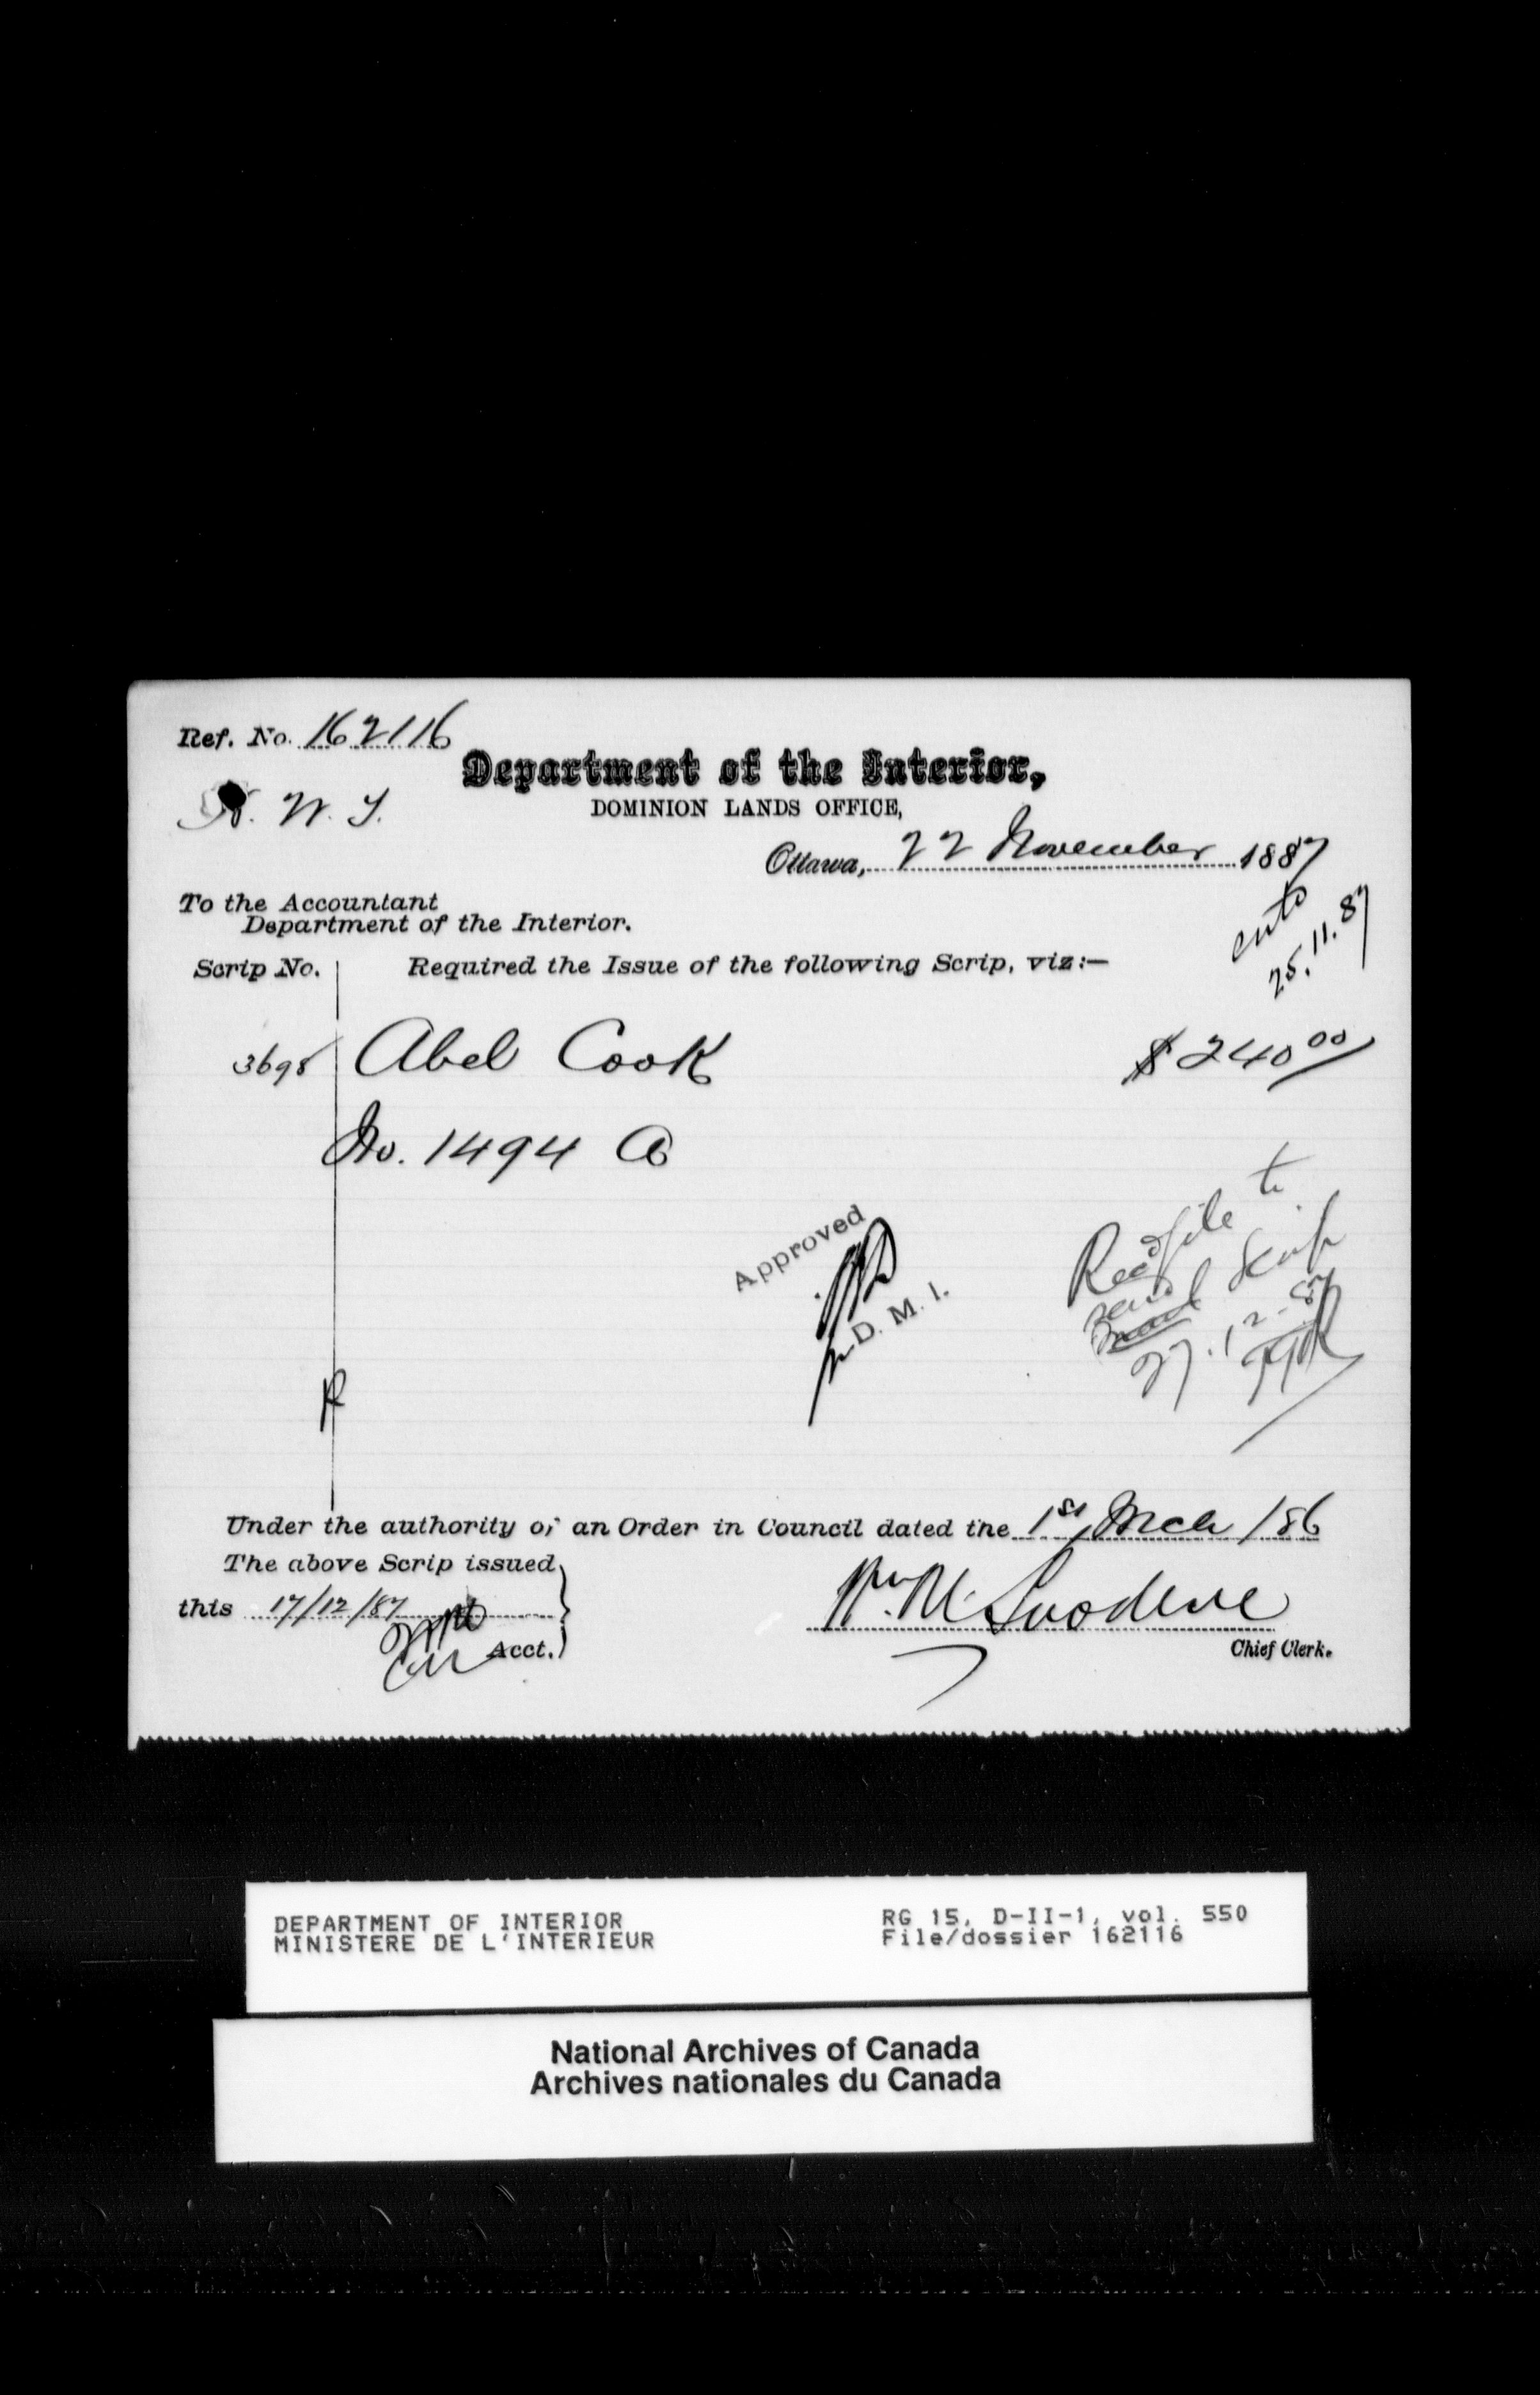 Ref. No. 162116
N. W. T.
Department of the Interior,
DOMINION LANDS OFFICE,
Ottawa, 22 November 1887
To the Accountant
Department of the Interior.
25.11.87
Scrip No. Required the Issue of the following Scrip, viz:—
3698 Abel Cook $240 00
No. 1494 A
Approved
D. M. I.
file to
send Scrip
27.12.87
Under the authority of an Order in Council dated the 1st Mch /86
The above Scrip issued
this 17/12/87
Acct.
Chief Clerk.
DEPARTMENT OF INTERIOR RG 15, D-II-1, vol. 550
MINISTERE DE L'INTERIEUR File/dossier 162116
National Archives of Canada
Archives nationales du Canada